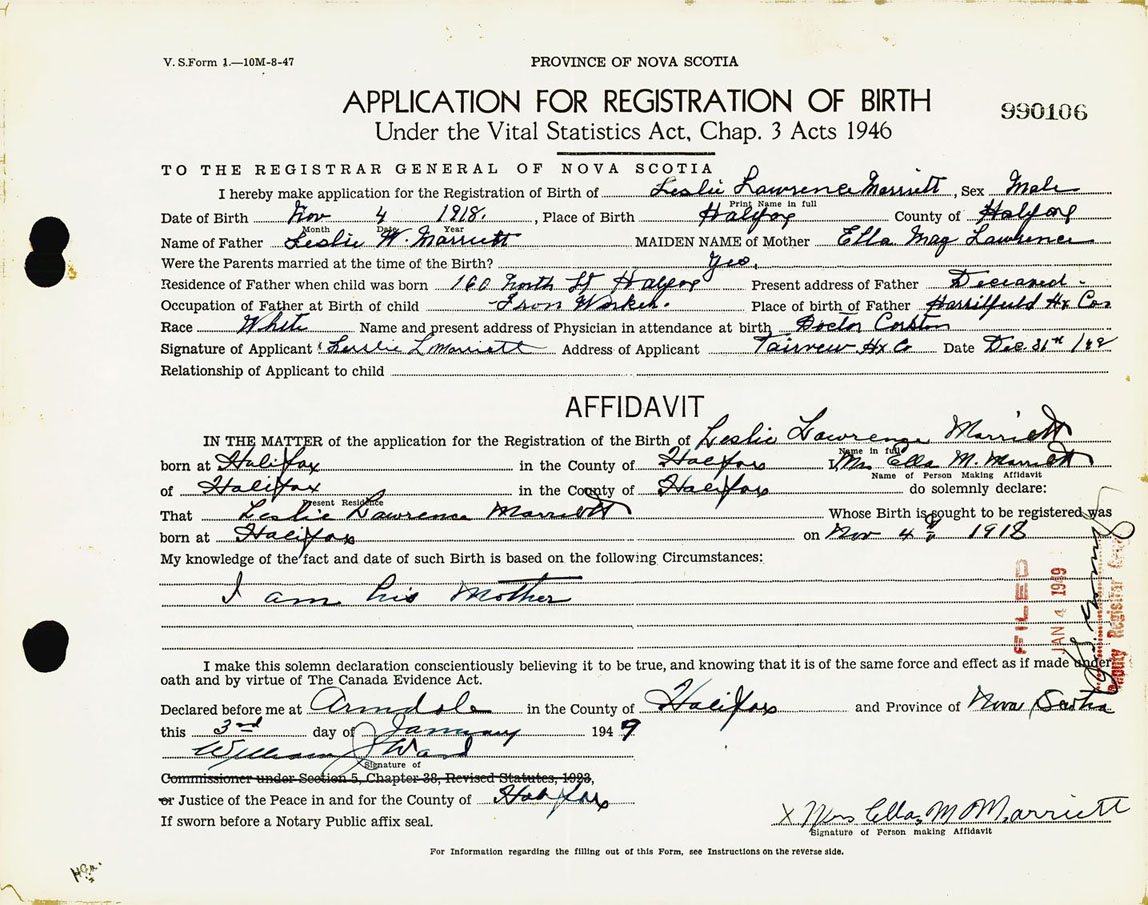 V. S. Form 1.—10M-8-47
PROVINCE OF NOVA SCOTIA
APPLICATION FOR REGISTRATION OF BIRTH
990106
Under the Vital Statistics Act, Chap. 3 Acts 1946
TO THE REGISTRAR GENERAL OF NOVA SCOTIA
I hereby make application for the Registration of Birth of Leslie Lawrence Marriett, Sex Male
Print Name in full
Date of Birth Nov 4 1918., Place of Birth Halifax County of Halifax
Month Date Year
Name of Father Leslie W. Marriett MAIDEN NAME of Mother Ella May Lawrence
Were the Parents married at the time of the Birth? Yes.
Residence of Father when child was born 160 North St Halifax Present address of Father Deceased -
Occupation of Father at Birth of child - Iron Worker. Place of birth of Father Harrietfield Hx Co
Race White Name and present address of Physician in attendance at birth Doctor Corston
Signature of Applicant Leslie L Marriett Address of Applicant Fairview Hx Co Date Dec 31st /48
Relationship of Applicant to child
AFFIDAVIT
IN THE MATTER of the application for the Registration of the Birth of Leslie Lawrence Marriett
Name in full
born at Halifax in the County of Halifax I, Mrs Ella M. Marriett
Name of Person Making Affidavit
of Halifax in the County of Halifax do solemnly declare:
Present Residence
That Leslie Lawrence Marriett Whose Birth is sought to be registered was
born at Halifax on Nov 4th 1918
My knowledge of the fact and date of such Birth is based on the following Circumstances:
I am his Mother
FILED
JAN 4 1949
Deputy Registrar
I make this solemn declaration conscientiously believing it to be true, and knowing that it is of the same force and effect as if made under
oath and by virtue of The Canada Evidence Act.
Declared before me at Armdale in the County of Halifax and Province of Nova Scotia
this 3rd day of January 1949
William J Ward
Signature of
Commissioner under Section 5, Chapter 38, Revised Statutes, 1923,
or Justice of the Peace in and for the County of Halifax
If sworn before a Notary Public affix seal.
X Mrs Ella M Marriett
Signature of Person making Affidavit
For Information regarding the filling out of this Form, see Instructions on the reverse side.